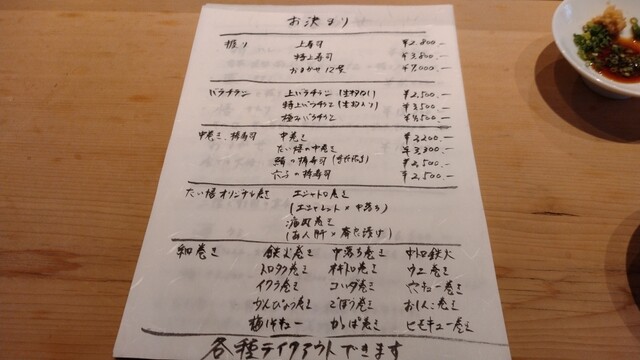 お決まり
握り 上寿司 ¥2,800.-
特上寿司 ¥3,800.-
おまかせ12貫 ¥7,000.-
バラチラシ 上バラチラシ ¥2,500.-
特上バラチラシ ¥3,500.-
極みバラチラシ
中巻き、棒寿司 中巻き ¥2,200.-
たい信の中巻き ¥3,300.-
鯖の棒寿司 ¥2,500.-
穴子の棒寿司 ¥2,500.-
オリジナル巻き エシャトロ巻き
(エシャレット×中落ち)
酒肴巻き
(あん肝×奈良漬け)
細巻き 鉄火巻き 中落ち巻き 中トロ鉄火
トロタク巻き ネギトロ巻き ウニ巻き
イクラ巻き
かんぴょう巻き ごぼう巻き おしんこ巻き
梅しそキュー かっぱ巻き ヒモキュー巻き
各種テイクアウトできます